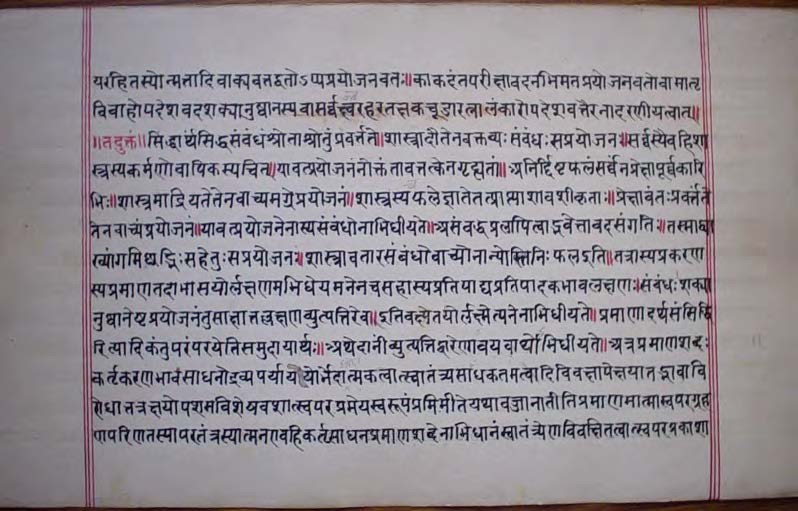 यरहितस्योन्मत्तादिवाक्यवत्तद्वतोऽप्यप्रयोजनवतः॥काकदंतपरीक्षावदनभिमतप्रयोजनवतोवामातृ
विवाहोपदेशवदशक्यानुष्ठानस्यवासर्वज्वरहरतक्षकचूडारत्नालंकारोपदेशवत्तैरनादरणीयत्वात्॥
॥तदुक्तं॥सिद्धार्थसिद्धसंबंधंश्रोताश्रोतुंप्रवर्त्तते॥शास्त्रादौतेनवक्तव्यःसंबंधःसप्रयोजनः॥सर्वस्यैवहिशा
स्त्रस्यकर्मणोवापिकस्यचित्॥यावत्प्रयोजनंनोक्तंतावत्तत्केनगृह्यतां॥अनिर्दिष्टफलंसर्वंनप्रेक्षापूर्वकारि
भिः॥शास्त्रमाद्रियतेतेनवाच्यमग्रेप्रयोजनं॥शास्त्रस्यफलेज्ञातेतत्प्राप्त्याशावशीकृताः॥प्रेक्षावंतःप्रवर्त्तंते
तेनवाच्यंप्रयोजनं॥यावत्प्रयोजनेनास्यसंबंधोनाभिधीयते॥असंबद्धप्रलापित्वाद्भवेत्तावदसंगतिः॥तस्माद्व्या
ख्यांगमिच्छद्भिःसहेतुःसप्रयोजनः॥शास्त्रावतारसंबंधोवाच्योनान्योस्तिनिःफलइति॥तत्रास्यप्रकरण
स्यप्रमाणतदाभासयोर्लक्षणमभिधेयमनेनचसहास्यप्रतिपाद्यप्रतिपादकभावलक्षणः॥संबंधःशक्या
नुष्ठानेष्टप्रयोजनंतुसाक्षात्तल्लक्षणव्युत्पत्तिरेव॥इतिवक्ष्येतयोर्लक्ष्मेत्यनेनाभिधीयते॥प्रमाणादर्थसंसिद्धि
रित्यादिकंतुपरंपरयेतिसमुदायार्थः॥अथेदानींव्युत्पत्तिद्वारेणावयवार्थोभिधीयते॥अत्रप्रमाणशब्दः
कर्तृकरणभावसाधनोद्रव्यपर्याययोर्भेदात्मकत्वात्स्वातंत्र्यसाधकतमत्वादिविवक्षापेक्षयातद्भावावि
रोधात्तत्रक्षयोपशमविशेषवशात्स्वपरप्रमेयस्वरूपंप्रमिमीतेयथावज्जानातीतिप्रमाणमात्मास्वपरग्रह
णपरिणतस्यापरतंत्रस्यात्मनएवहिकर्तृसाधनप्रमाणशब्देनाभिधानंस्वातंत्र्येणविवक्षितत्वात्स्वपरप्रकाशा